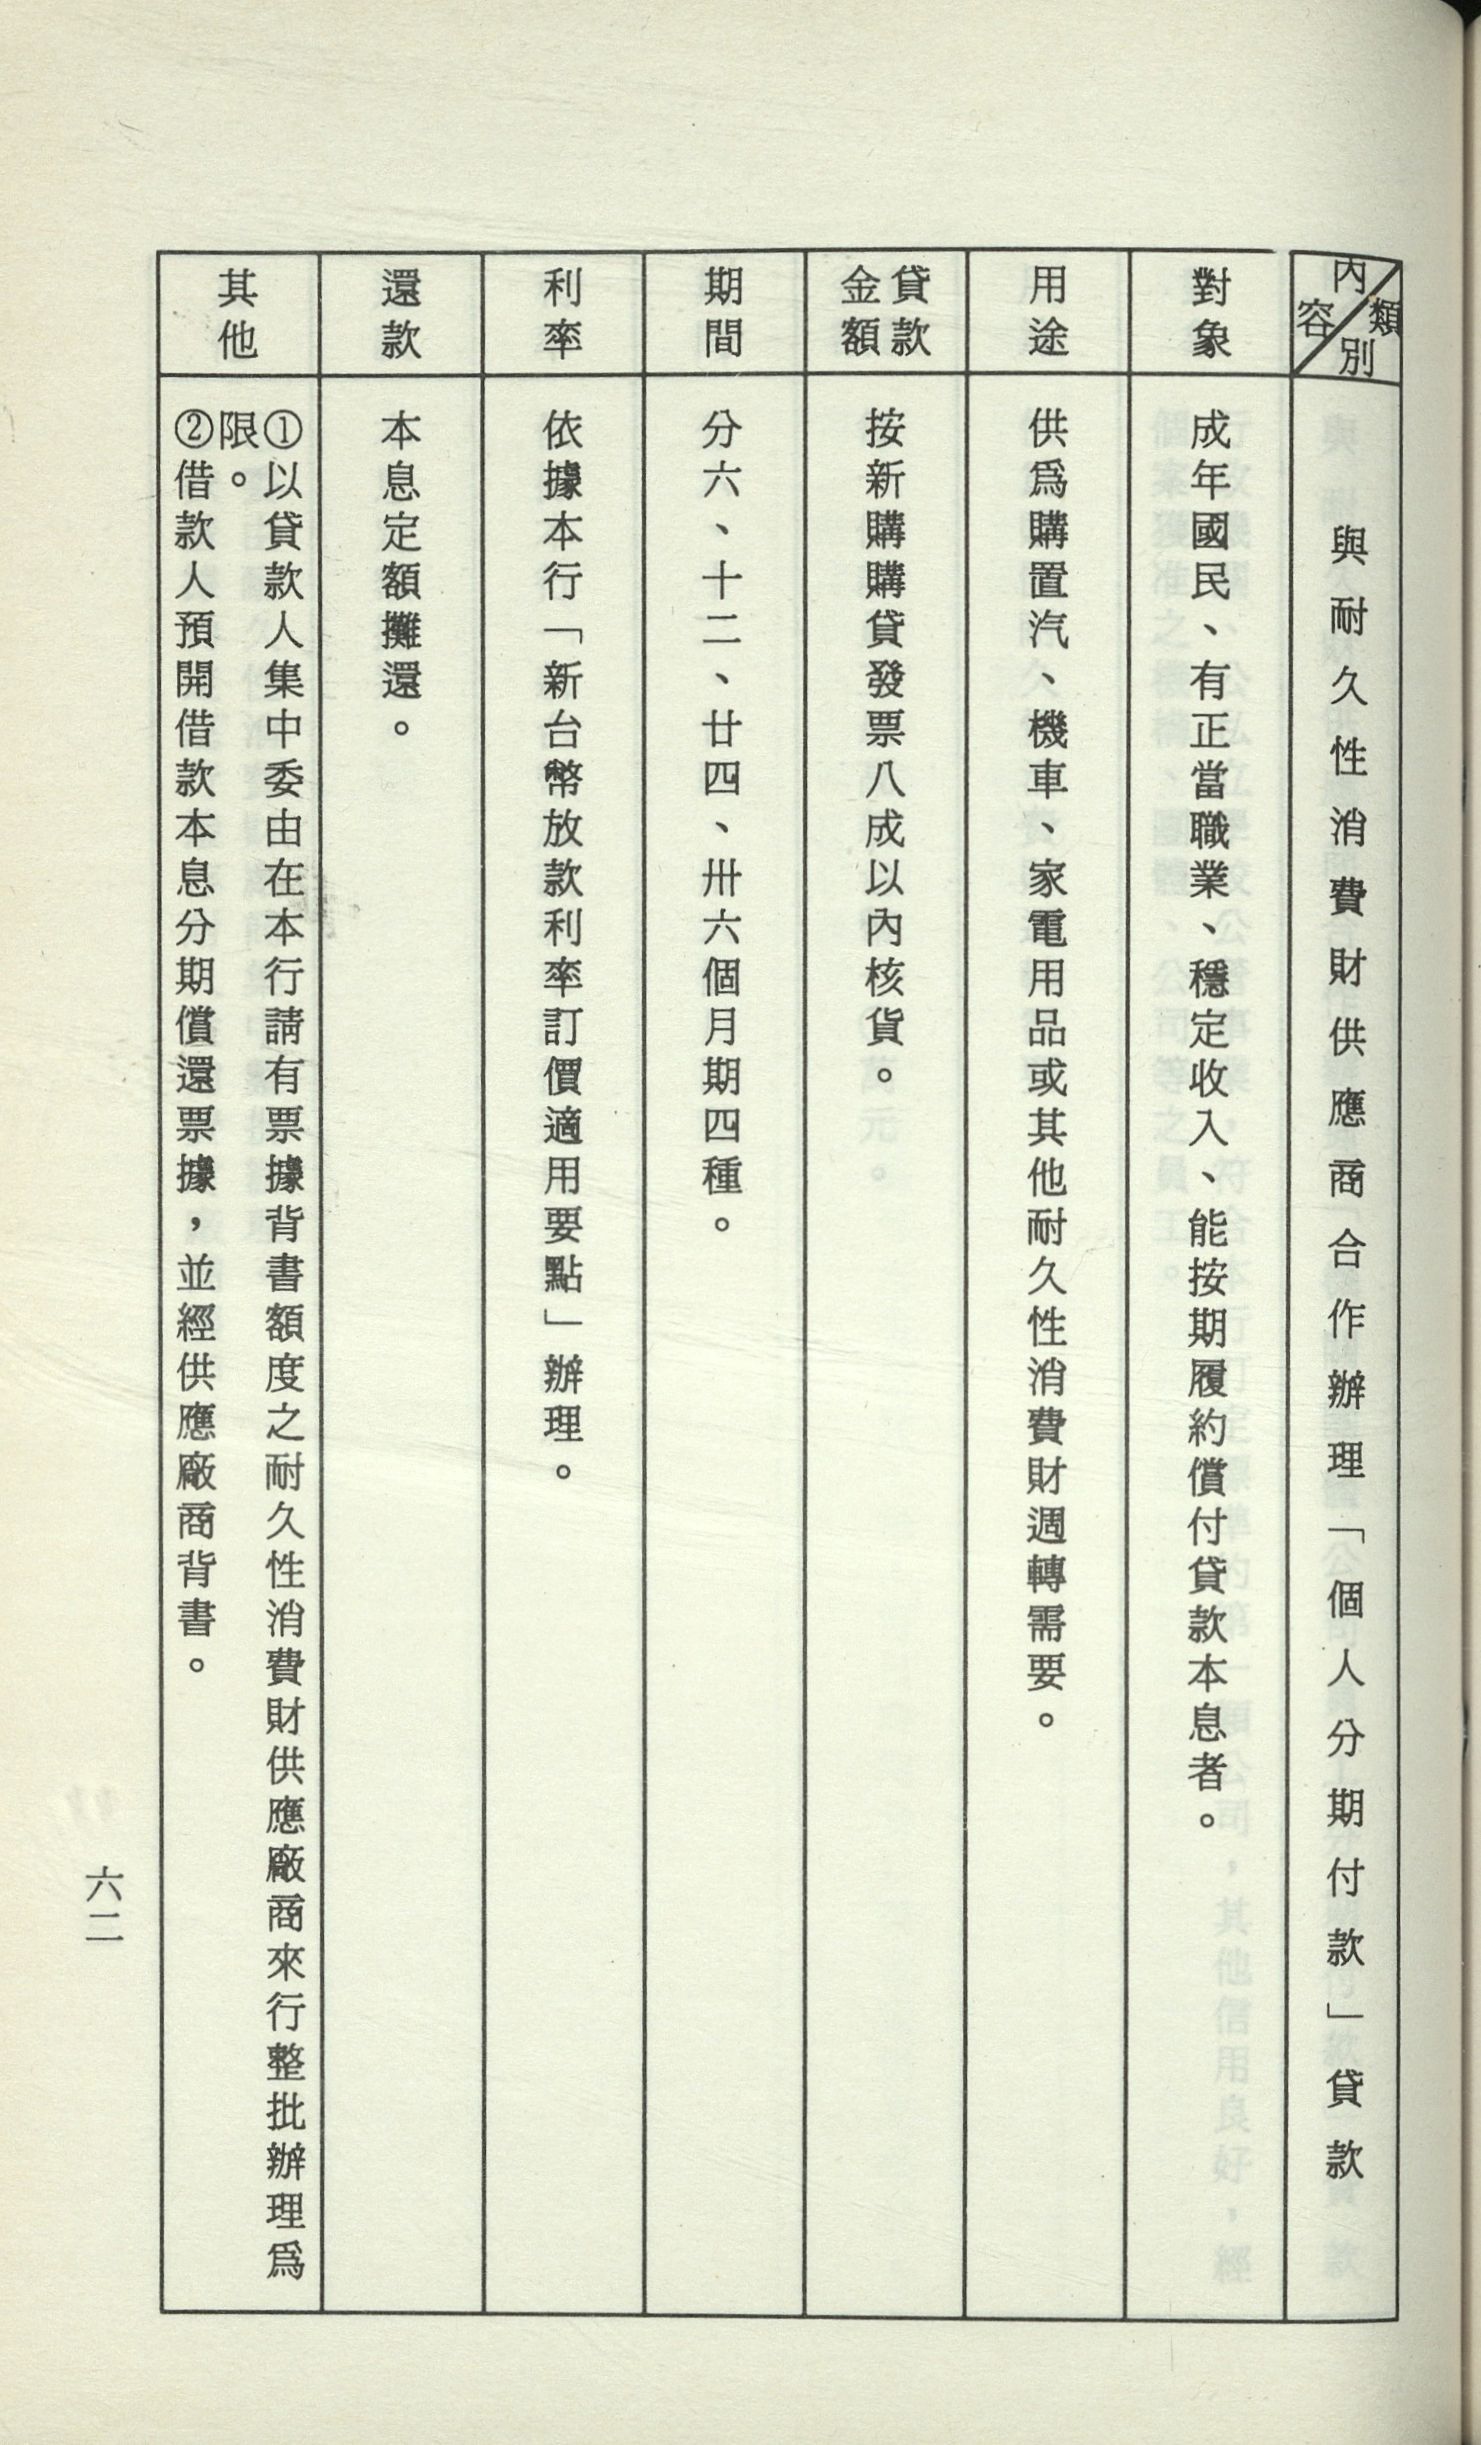 類別
內容
與耐久性消費財供應商合作辦理「個人分期付款」貸款
對象
成年國民、有正當職業、穩定收入、能按期履約償付貸款本息者。
用途
供爲購置汽、機車、家電用品或其他耐久性消費財週轉需要。
貸款
金額
按新購購貸發票八成以內核貸。
期間
分六、十二、廿四、卅六個月期四種。
利率
依據本行「新台幣放款利率訂價適用要點」辦理。
還款
本息定額攤還。
其他
①以貸款人集中委由在本行請有票據背書額度之耐久性消費財供應廠商來行整批辦理爲
限。
②借款人預開借款本息分期償還票據，並經供應廠商背書。
六二